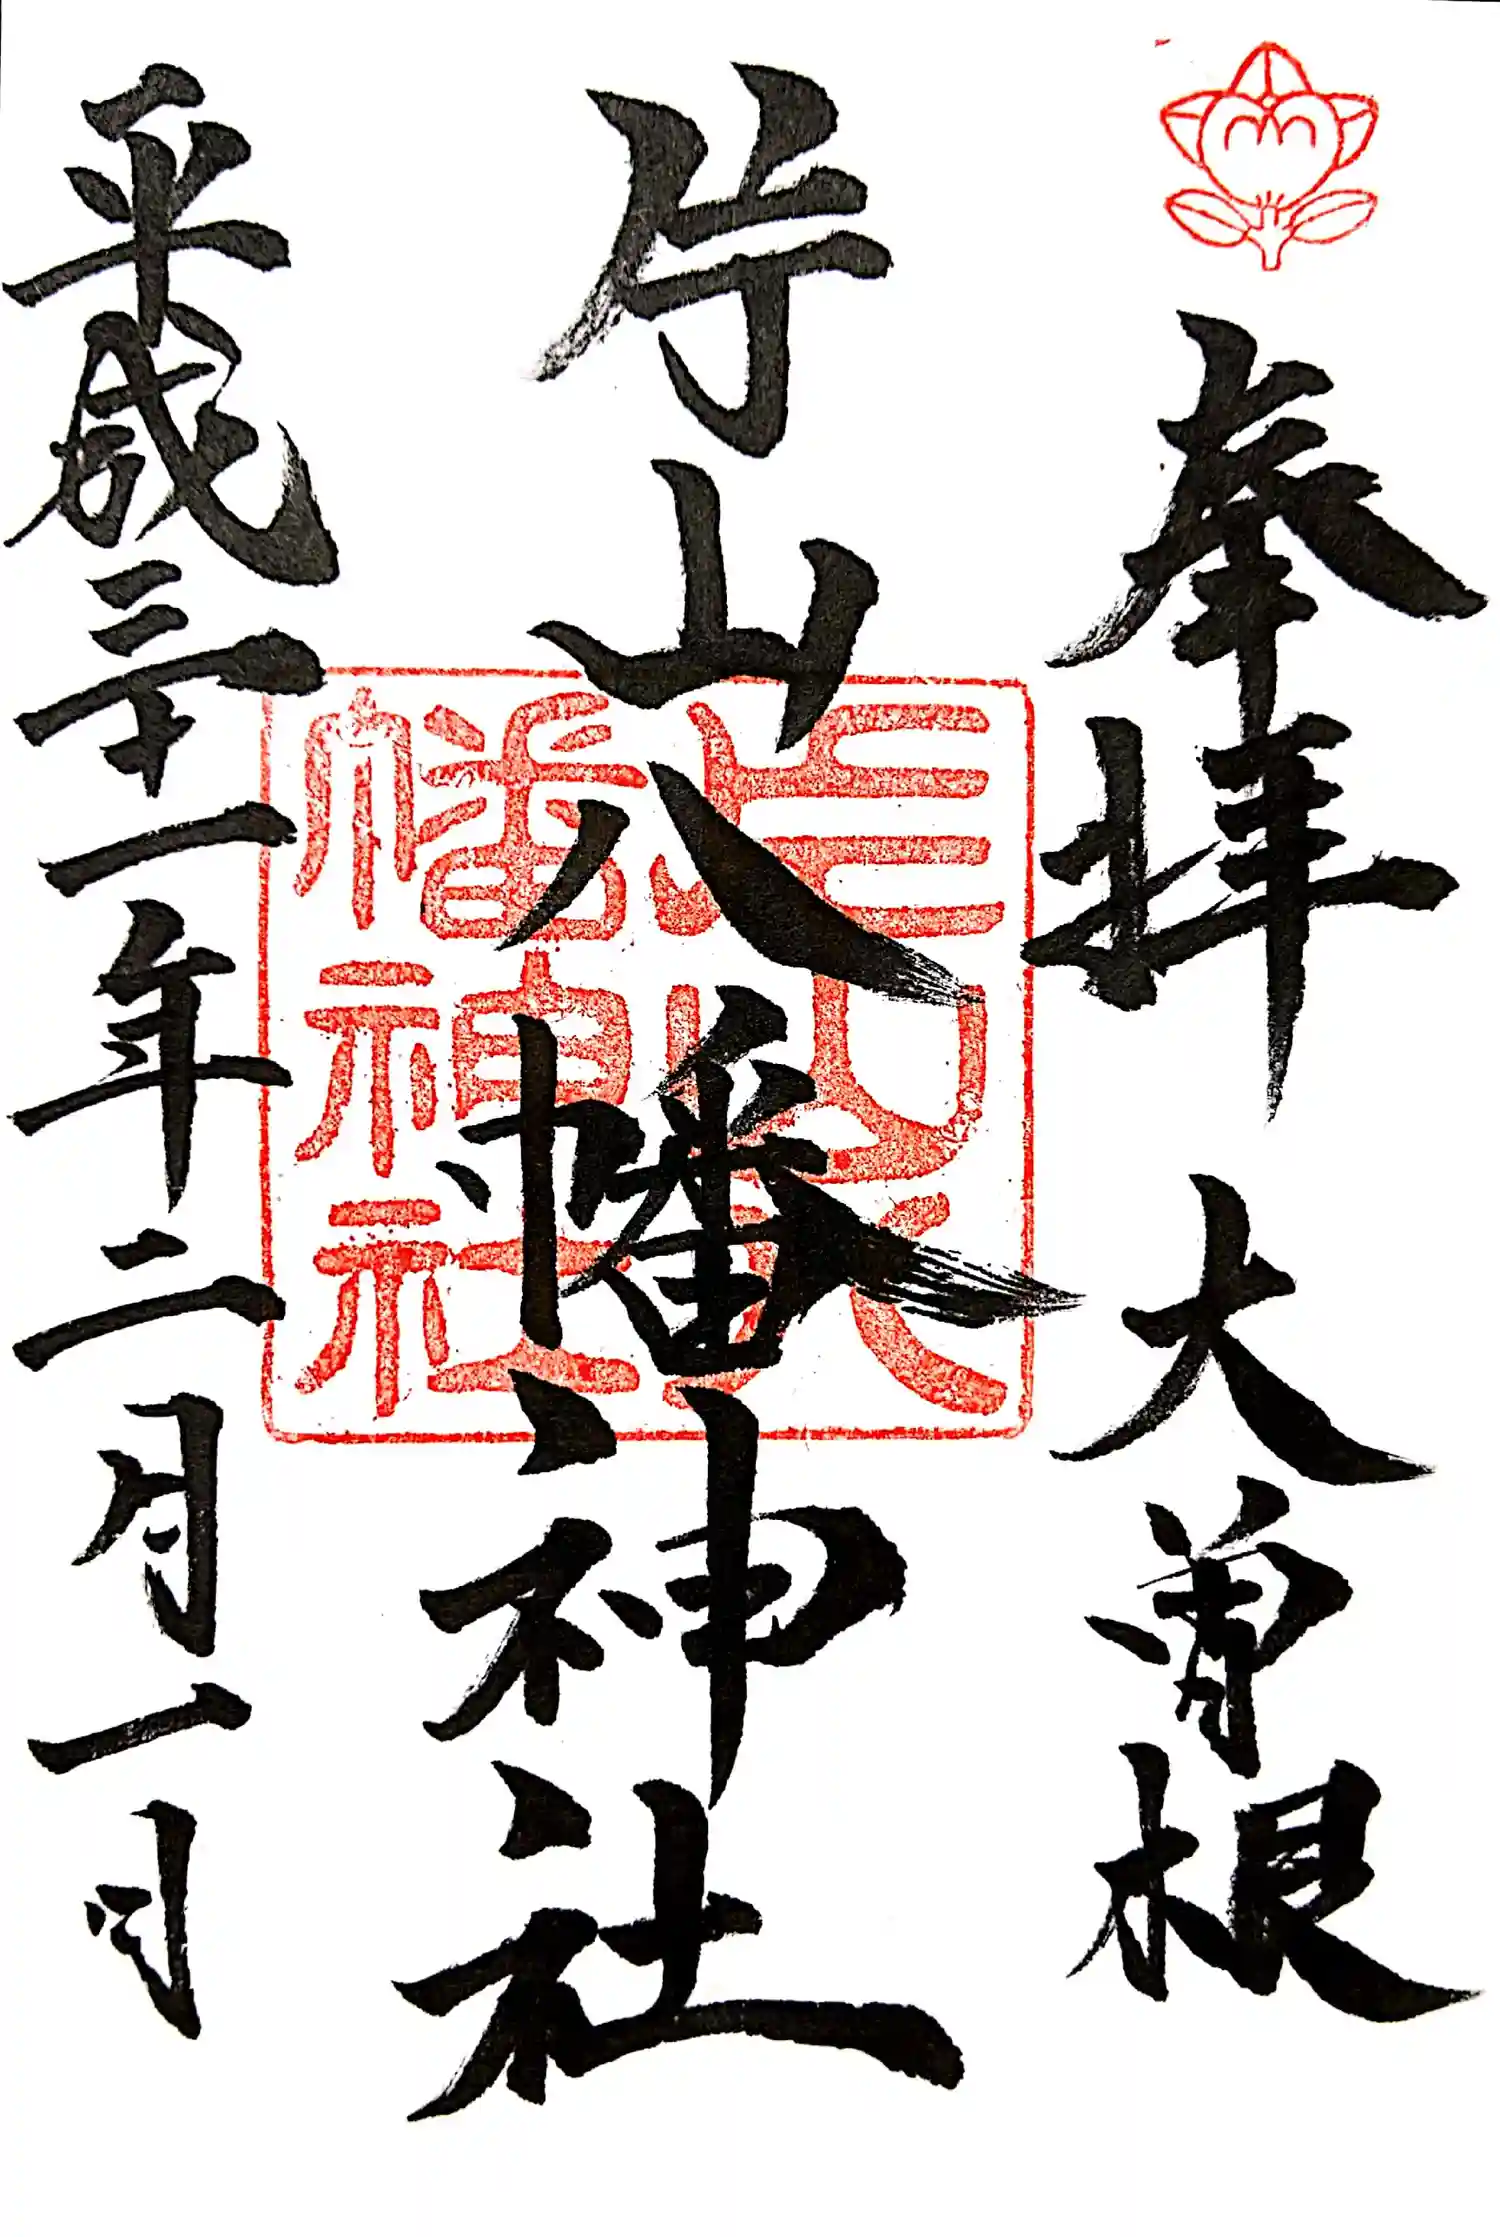 奉拝 大曽根
片山八幡神社
平成三十一年二月一日
片山八
幡神社